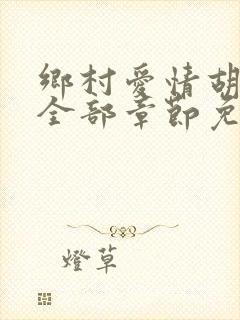 鄉村愛情胡
全部章節免
燈草